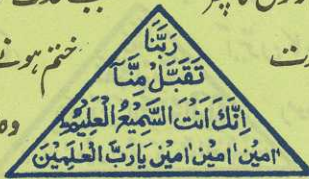 رَبَّنَا
تَقَبَّلْ مِنَّا
اِنَّكَ اَنْتَ السَّمِيْعُ الْعَلِيْمُ
اٰمِيْن اٰمِيْن اٰمِيْن يَا رَبَّ الْعٰلَمِيْنَ
ختم ہونے
وہ